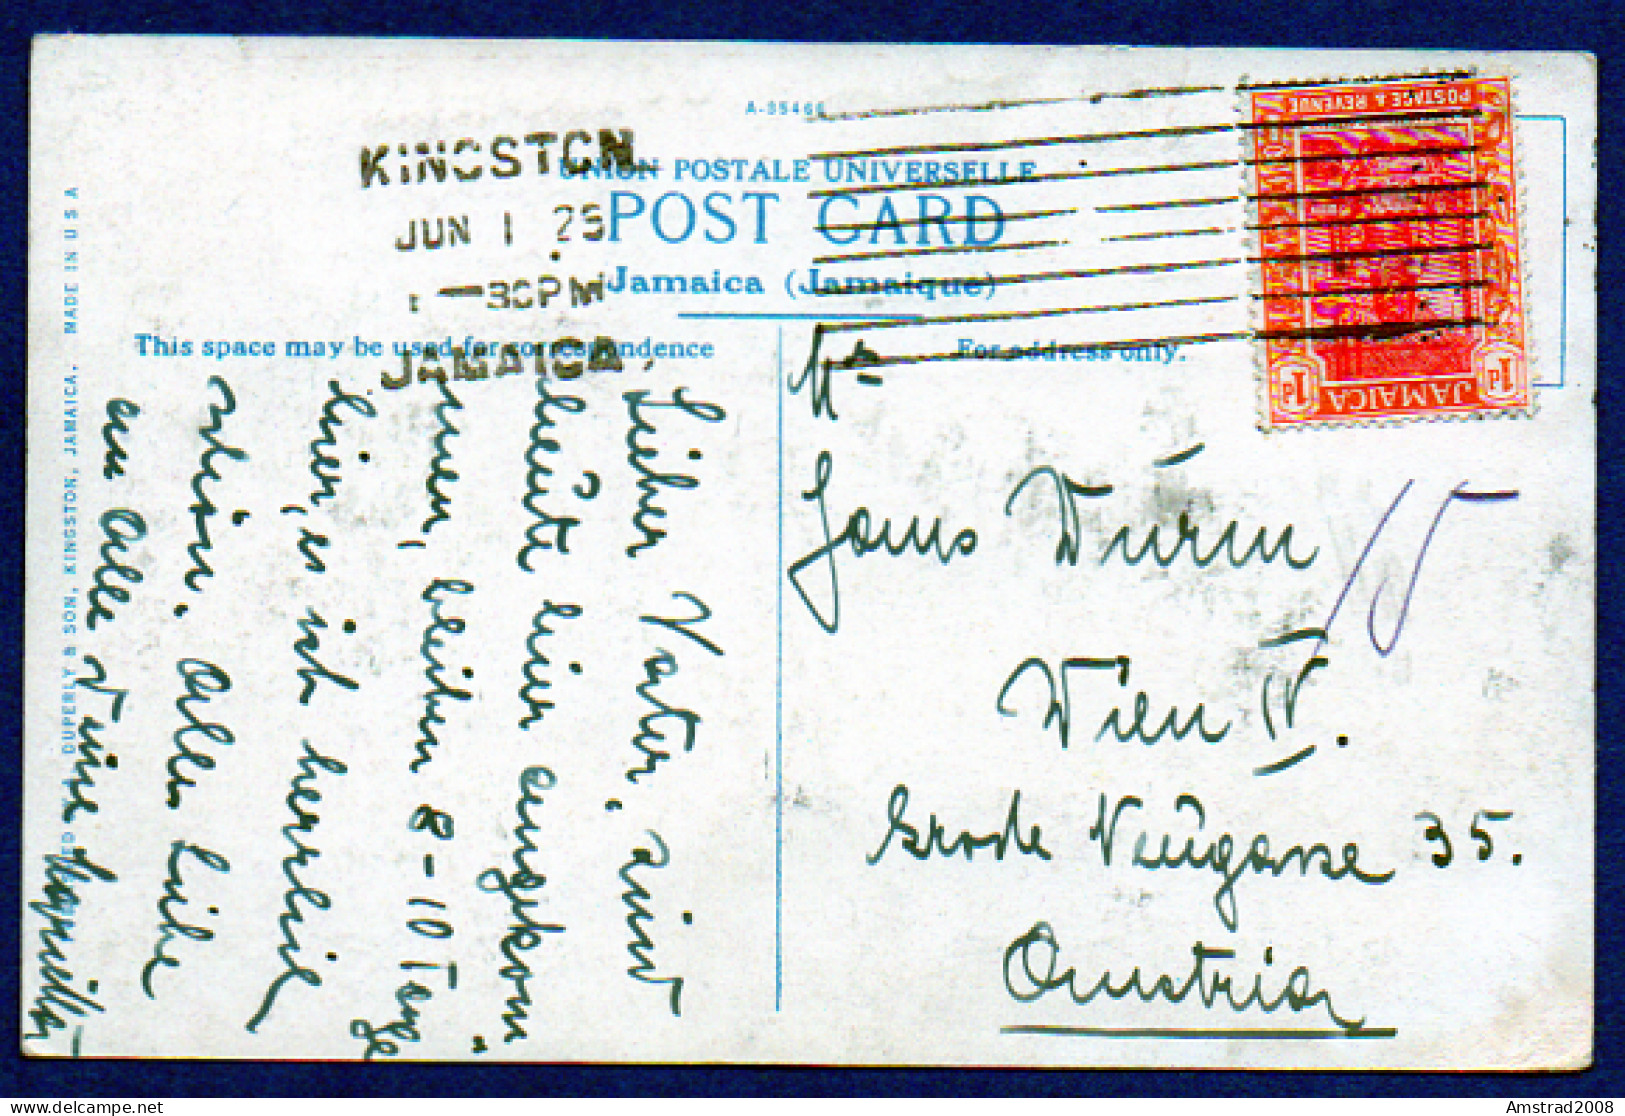 A-35466
KINGSTON
JUN 1 25
-30PM
JAMAICA
UNION POSTALE UNIVERSELLE
POST CARD
Jamaica (Jamaique)
This space may be used for correspondence
For address only.
POSTAGE & REVENUE
JAMAICA
1d 1d
DUPERLY & SON, KINGSTON, JAMAICA. MADE IN U S A
Lieber Vater, sind
heute hier angekom
men, bleiben 8-10 Tage
hier, es ist herrlich
schön. Alles Liebe
an Alle Deine
Hans Dürm
Wien IV.
Große Neugasse 35.
Austria
15
Amstrad2008